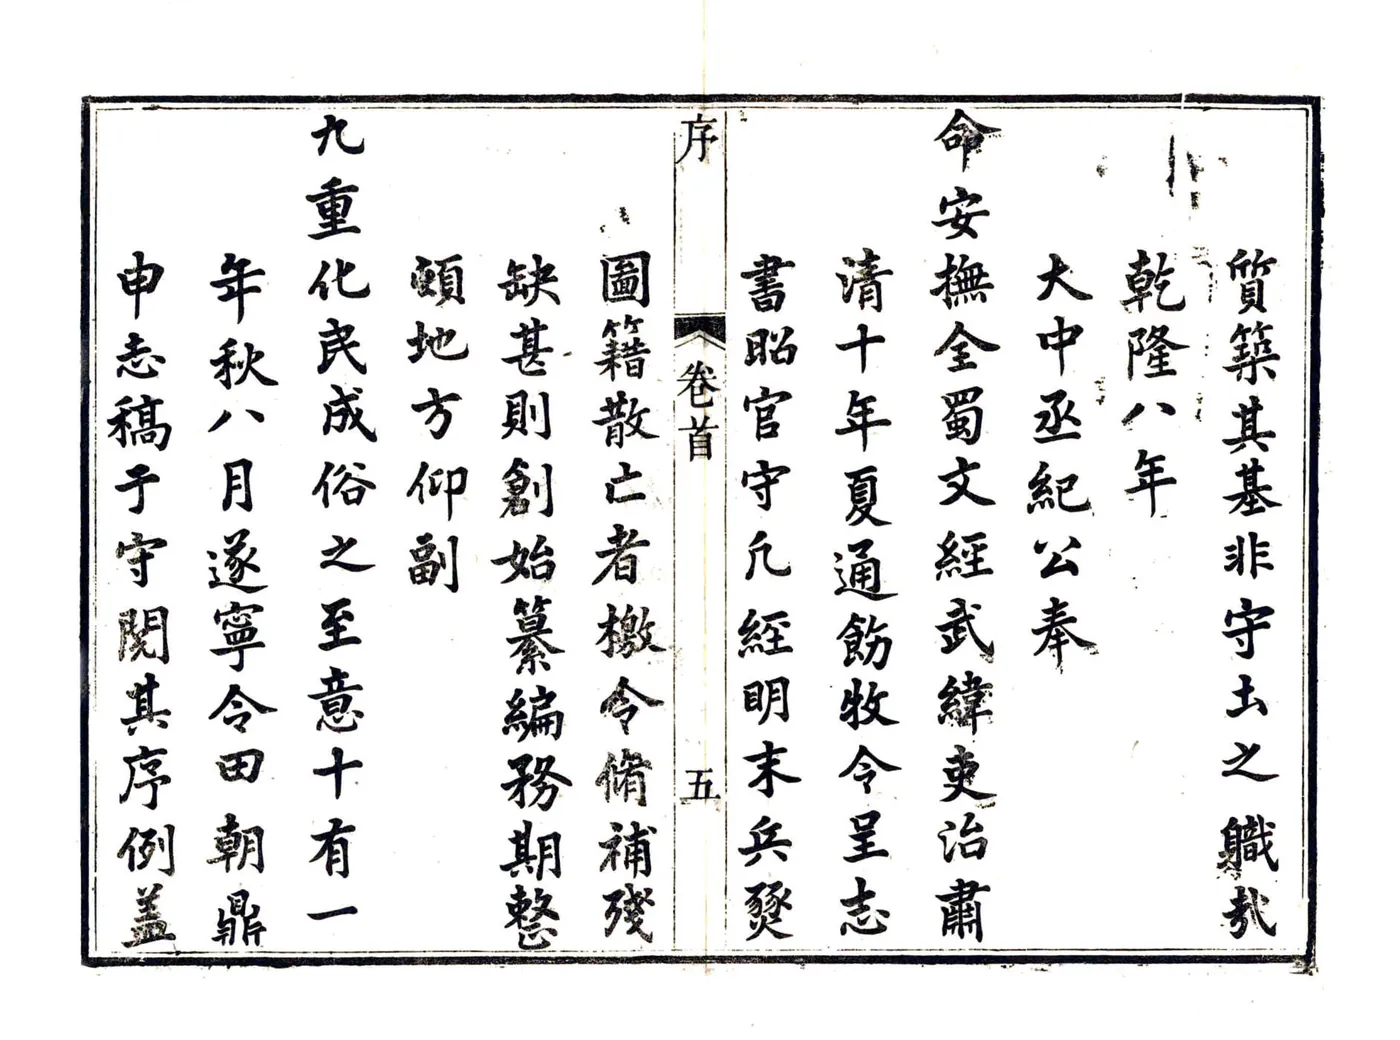 質築其基非守土之職哉
乾隆八年
大中丞紀公奉
命安撫全蜀文經武緯吏治肅
清十年夏通飭牧令呈志
書昭官守凡經明末兵燹
序
卷首
五
圖籍散亡者檄令脩補殘
缺甚則創始纂編務期整
頓地方仰副
九重化民成俗之至意十有一
年秋八月遂寧令田朝鼎
申志稿于守閱其序例蓋